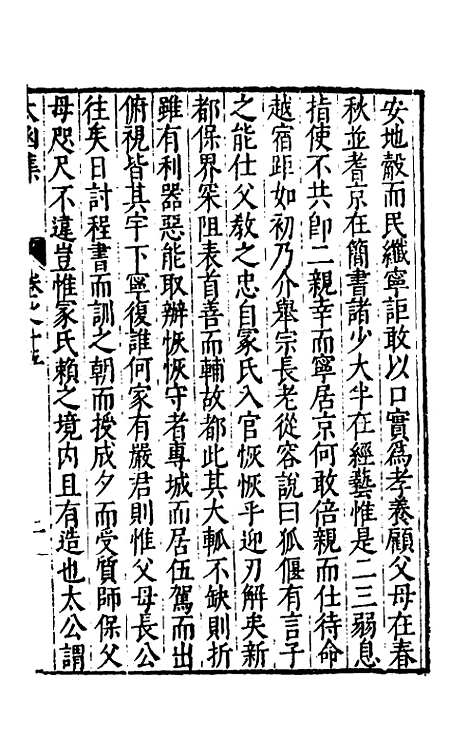 安地穀而民纖寧詎敢以口實為孝養顧父母在春
秋並耆京在簡書諸少大半在經藝惟是二三弱息
指使不共卽二親幸而寧居京何敢倍親而仕待命
越宿距如初乃介舉宗長老從容說曰狐偃有言子
之能仕父教之忠自冢氏入官恢恢乎迎刃解矣新
都保界罙阻表首善而輔故都此其大軱不缺則折
雖有利器惡能取辦恢恢守者專城而居伍駕而出
俯視皆其宇下寧復誰何家有嚴君則惟父母長公
往矣日討程書而訓之朝而授成夕而受質師保父
母咫尺不違豈惟冢氏賴之境内且有造也太公謂
太函集
卷之十五
二